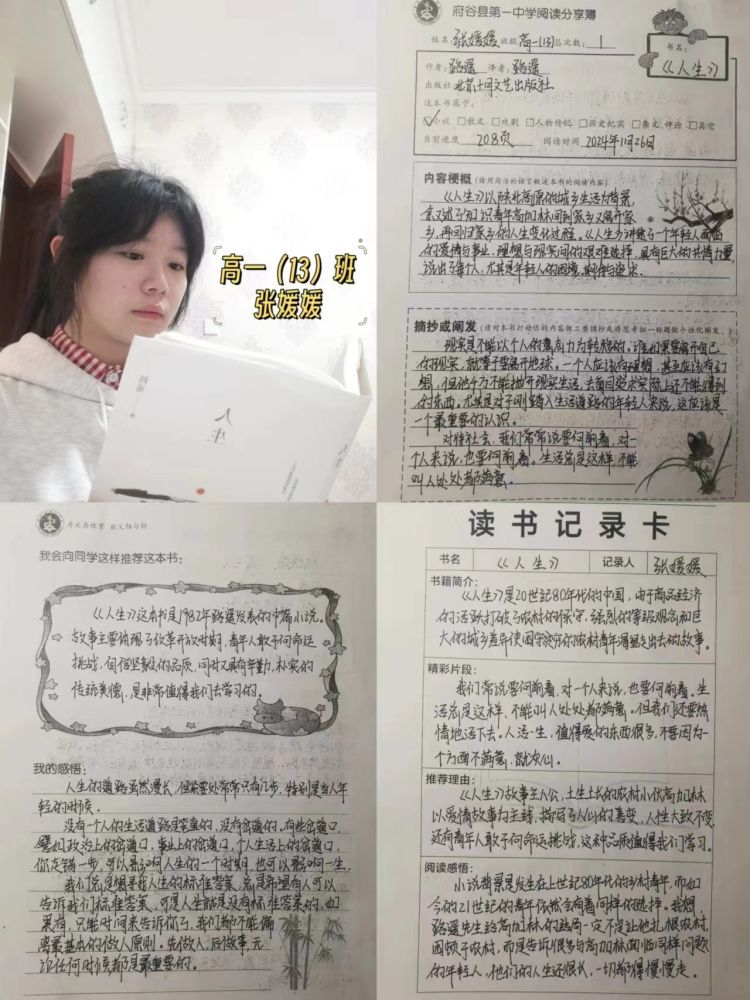 高一（13）班
张媛媛
人生
府谷县第一中学阅读分享簿
姓名：张媛媛 班级 高一(13) 总次数：1
书名：
《人生》
作者：路遥 译者：路遥
出版社：北京十月文艺出版社
这本书属于：
☑小说 □散文 □戏剧 □人物传记 □历史纪实 □杂文、评论 □其它
当前进度 208页 阅读时间 2024年11月26日
内容梗概（请用简洁的语言概述本书的阅读内容）
《人生》以陕北高原的城乡生活为背景，
叙述了知识青年高加林回到家乡又离开家
乡，再回归家乡的人生变化过程。《人生》讲述了一个年轻人面临
的爱情与事业、理想与现实间的艰难选择，具有巨大的共情力量，
说出了每个人，尤其是年轻人的困境、期待与追求。
摘抄或阐发（请对本书打动你的内容做工整摘抄或将思考拟一标题做个性化阐发）
现实是不能以个人的意志为转移的。谁如果要离开自己
的现实，就等于要离开地球。一个人应该有理想，甚至应该有幻
想，但他千万不能抛开现实生活，去盲目追求实际上还不能得到
的东西。尤其是对于刚踏入生活道路的年轻人来说，这应该是
一个最重要的认识。
对待社会，我们常常说要向前看，对一
个人来说，也要向前看。生活总是这样，不能
叫人处处都满意。
奇文共欣赏 疑义相与析
我会向同学这样推荐这本书：
《人生》这本书是1982年路遥发表的中篇小说。
故事主要体现了改革开放时期，青年人敢于向命运
挑战，自信坚毅的品质，同时又具有辛勤，朴实的
传统美德，是非常值得我们去学习的。
我的感悟：
人生的道路虽然漫长，但紧要处常常只有几步，特别是当人年
轻的时候。
没有一个人的生活道路是笔直的，没有岔道的，有些岔道口，
譬如政治上的岔道口，事业上的岔道口，个人生活上的岔道口，
你走错一步，可以影响人生的一个时期，也可以影响一生。
我们总是想寻找人生的标准答案，总是希望有人可以
告诉我们标准答案，可是人生就是没有标准答案的，如
果有，只能时间来告诉你了，我们都不能偏
离最基本的做人原则。先做人，后做事，无
论任何时候都是最重要的。
读书记录卡
书名 《人生》 记录人 张媛媛
书籍简介：
《人生》是20世纪80年代的中国，由于商品经济
的活跃打破了农村的保守，强烈的等级观念和巨
大的城乡差异使困守农村的农村青年渴望走出去的故事。
精彩片段：
我们常说要向前看，对一个人来说，也要向前看。生
活总是这样，不能叫人处处都满意。但我们还要热
情地活下去。人活一生，值得爱的东西很多，不要因为一
个方面不满意，就灰心。
推荐理由：
《人生》故事主人公，土生土长的农村小伙高加林
以爱情故事为主线，描写了人心的善变，人性大致不变，
还有青年人敢于向命运挑战，这种品质值得我们学习。
阅读感悟：
小说背景是发生在上世纪80年代的乡村青年，而如
今的21世纪的青年依然会有着同样的选择。我想，
路遥先生给高加林的结局一定不是让他扎根农村，
困顿于农村，而是告诉很多与高加林面临同样问题
的年轻人，他们的人生还很长，一切都得慢慢走。